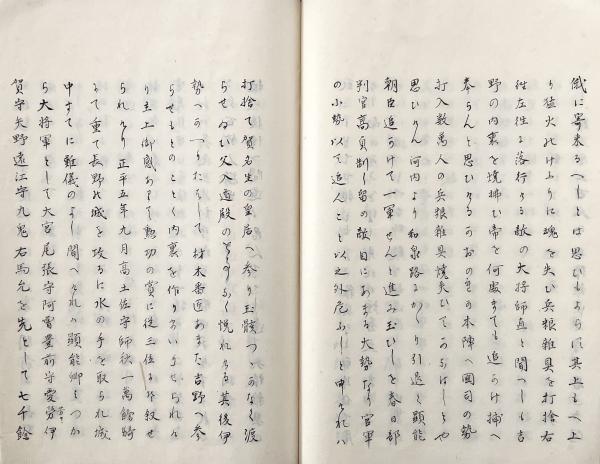 俄に寄来るへしとは思ひもよらす其上も人上
り猛火のけふりに魂を失ひ兵粮雑具を打捨右
往左往に落行ける敵の大将師直と聞つしも吉
野の内裏を焼拂ひ帝を何處まても追かけ捕へ
奉らんと思ひける おの の本陣へ国司の勢
打入数萬人の兵粮雑具焼失ひて
思ひけん河内より和泉路にかゝり引退く顕能
朝臣追かけて一軍せんと進み玉ひしを春日部
判官高貞制し留め敵目にあまる大勢なり官軍
の小勢以て追んこと以之外危ふしと申けれハ
打捨て賀名生の皇居へ参り玉骸つゝかなく渡
らせ給ひ父入道殿の なく悦れける其後伊
勢へかへりたまひて材木番匠あまた吉野へ参
らせもとのことく内裏を作りまいらせられけ
り主上御感ありて勲功の賞に従三位に叙せ
られけり正平五年九月高土佐守師秋一萬餘騎
にて重て長野の城を攻るに水の手を取られ城
中すてに難儀のよし聞へけれハ顕能卿みつか
ら大将軍として大宮尾張守阿曽豊前守愛労伊
賀守矢野遠江守九鬼右馬允を先として七千餘